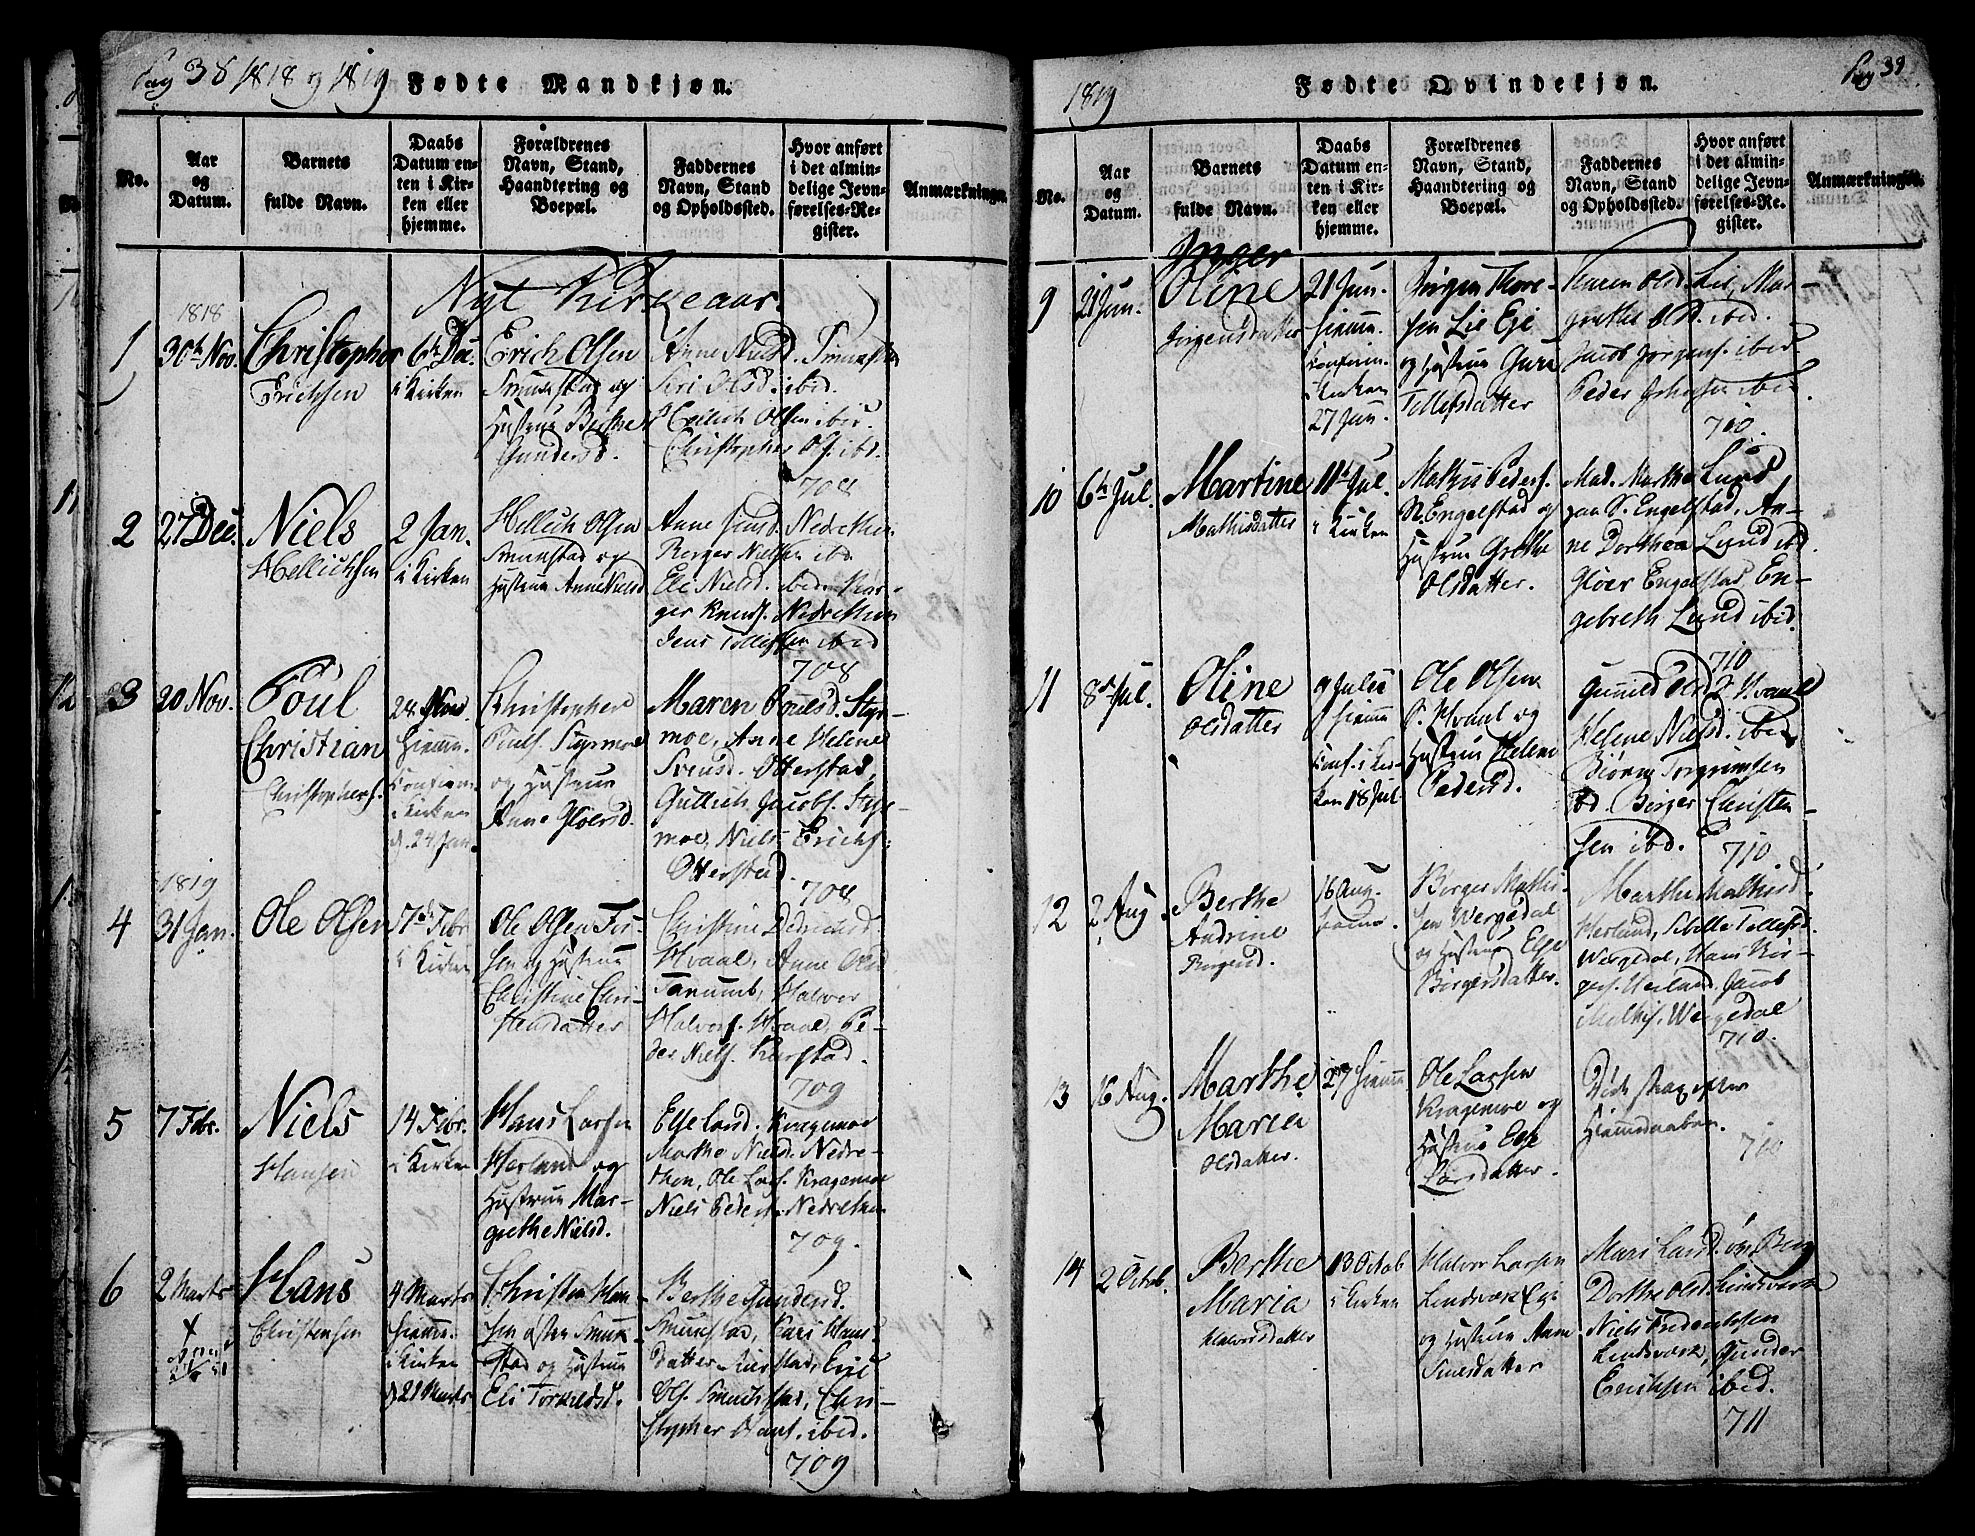 Pag 38 1818 og 1819 Fødte Mandkjøn.
No.
Aar
og
Datum.
Barnets
fulde Navn.
Daabs
Datum en-
ten i Kir-
ken eller
hjemme.
Forældrenes
Navn, Stand,
Haandtering og
Boepæl.
Faddernes
Navn, Stand
og Opholdssted.
Hvor anført
i det almin-
delige Jevn-
førelses-Re-
gister.
Anmærkninger.
Nyt Kirkeaar.
1818
1
30th Nov.
Christopher
Erichsen
6th Dec
i Kirken
Erich Olsen
og
Hustrue Berthe
Gundersd.
Anne
Siri Olsd. ibid.
Hellich Olsen ibid.
Christopher Ols. ibd.
708
2
27 Dec.
Niels
Hellichsen
2 Jan.
i Kirken
Hellich Olsen
Smukstad og
Hustrue Anne Nielsd
Anne Jensd. Nedrethun
Børger Nielsen ibd
Eli Nielsd. ibid. Bør-
ger Knuds. Nedrethun
Jens Tollefsen ibid
708
3
20 Nov.
Poul
Christian
Christophers.
24 Nov
hjemme.
Confirm.
i Kirken
d. 24 Jan.
Christopher
Pouls. Styrmoe
og Hustrue
Anne Gloersd.
Maren Poulsd. Styr-
moe, Anne Helene
Svensd. Otterstad,
Guttich Jacobs. Styr-
moe, Niels Erichs.
Otterstad.
708
1819
4
31 Jan.
Ole Olsen
17de Febr
i Kirken
Ole Olsen
og Hustrue
Christine Chri-
stensdatter
Christine
Hvaal, Anne Olsd
Tanumb, Halvor
Halvors. Hvaal, Pe-
der Niels. Kurstad.
709
5
7 Febr.
Niels
Hansen
14 Febr.
i Kirken
Hans Larsen
Herland og
Hustrue Mar-
grethe Nielsd.
Ege Larsd. Kragemoe
Marthe Nielsd. Nedre-
thun, Ole Lars. Kragemoe
Niels Peders. Nedrethun
709.
6
2 Marts
Hans
Christensen
4 Marts
hiemme.
i Kirken
d 21 Marts
Christen Han-
sen østre Smuk-
stad og Hustrue
Eli Torkildsd.
Berthe Gundersd.
Smukstad, Kari Hans-
datter
Ols. Smukstad, Chri-
stopher Hans. ibid.
709
1819 Fødte Qvindekjøn. Pag 39
No.
Aar
og
Datum.
Barnets
fulde Navn.
Daabs
Datum en-
ten i Kir-
ken eller
hjemme.
Forældrenes
Navn, Stand,
Haandtering og
Boepæl.
Faddernes
Navn, Stand
og Opholdssted.
Hvor anført
i det almin-
delige Jevn-
førelses-Re-
gister.
Anmærkninger.
9
21 Jun.
Inger
Oline
Jörgensdatter
21 Jun.
hiemme.
Confirm.
i Kirken
27 Jun.
Jörgen Thore-
sen Lie Eje
og Hustrue Guri
Tollefsdatter
Karen Olsd. Lie, Mar-
grethe Ol. D. ibid.
Jacob Jørgens. ibid.
Peder Johansen ibid
710.
10
6th Jul.
Martine
Mathisdatter
11th Jul.
i Kirken
Mathis Peders.
N. Engelstad og
Hustrue Grethe
Olsdatter.
Mad. Marthe Lund
paa S. Engelstad, An-
ne Dorthea Lund ibd.
Gloer Engelstad, En-
gebreth Lund ibid.
710
11
8de Jul.
Oline
Olsdatter
9 Julii
hiemme
Conf. i Kir-
ken 18 Jul.
Ole Olsen
S. Hvaal og
Hustrue Helene
Pedersd.
Gunild Olsd S. Hvaal
Helene Nielsd. ibid
Biörn Torgrimsen
ibd. Børger Christen-
sen ibd.
710.
12
2 Aug
Berthe
Andrine
Børgersd.
16 Aug.
Børger Mathi-
sen Wergedal
og Hustrue Ege
Børgersdatter.
Marthe Mathisd.
Herland, Sibille Tollefsd.
Wergedal, Hans Bör-
gers. Herland, Jacob
Mathis. Wergedal
710.
13
16 Aug.
Marthe
Maria
Olsdatter.
27 hiemme
Ole Larsen
Kragemoe og
Hustrue Ege
Larsdatter.
Död strax efter
Hiemmedaaben.
710
14
2 Octob.
Berthe
Maria
Halvorsdatter
13 Octob
i Kirken
Halvor Larsen
Lindsværk Eje
og Hustrue Anne
Mari Larsd. öv. Berg
Dorthe Olsd. Lindsværk
Niels Friderichsen
Lindsværk, Gunder
Erichsen ibid.
711